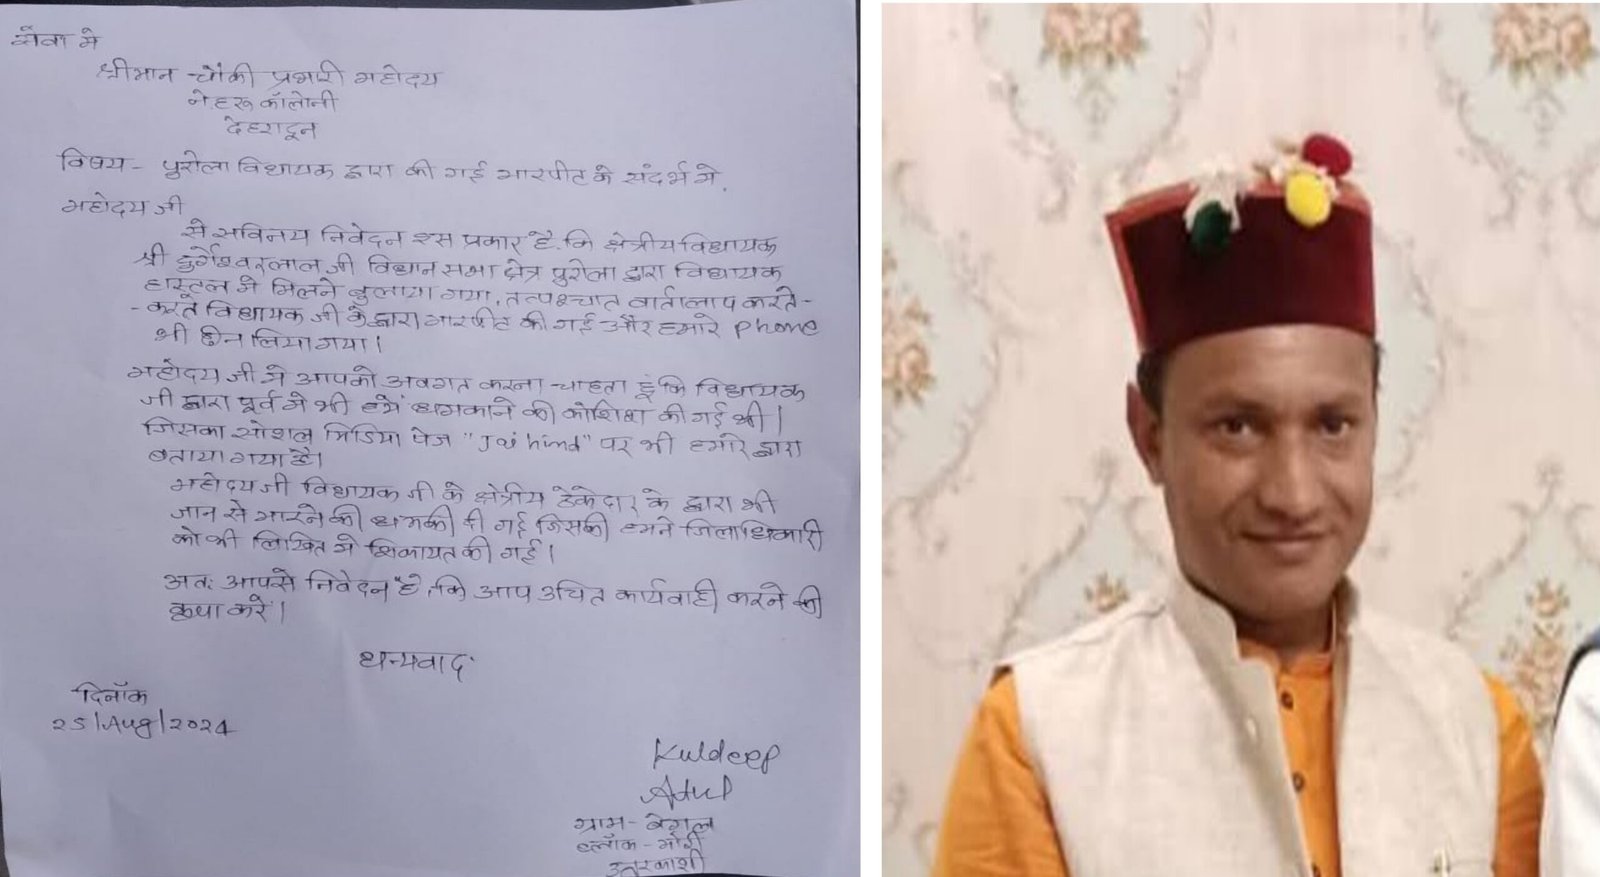 सेवा मे
श्रीमान चौकी प्रभारी महोदय
नेहरू कॉलोनी
देहरादून
विषय - पुरोला विधायक द्वारा की गई मारपीट के संदर्भ मे.
महोदय जी
से सविनय निवेदन इस प्रकार है. कि क्षेत्रीय विधायक
श्री दुर्गेश्वरलाल जी विधान सभा क्षेत्र पुरोला द्वारा विधायक
हास्टल मे मिलने बुलाया गया, तत्पश्चात वार्तालाप करते-
-करते विधायक जी के द्वारा मारपीट की गई और हमारे phone
भी छीन लिया गया।
महोदय जी मे आपको अवगत करना चाहता हूं कि विधायक
जी द्वारा पूर्व मे भी हमें धमकाने की कोशिश की गई थी।
जिसका सोशल मिडिया पेज "Jai hind" पर भी हमारे द्वारा
बताया गया है।
महोदय जी विधायक जी के क्षेत्रीय ठेकेदार के द्वारा भी
जान से मारने की धमकी दी गई जिसकी हमने जिलाधिकारी
को भी लिखित मे शिकायत की गई।
अतः आपसे निवेदन है. कि आप उचित कार्यवाही करने की
कृपा करें।
धन्यवाद
दिनाँक
25/Aug/2024
Kuldeep
Atul
ग्राम -
ब्लॉक - मोरी
उत्तरकाशी